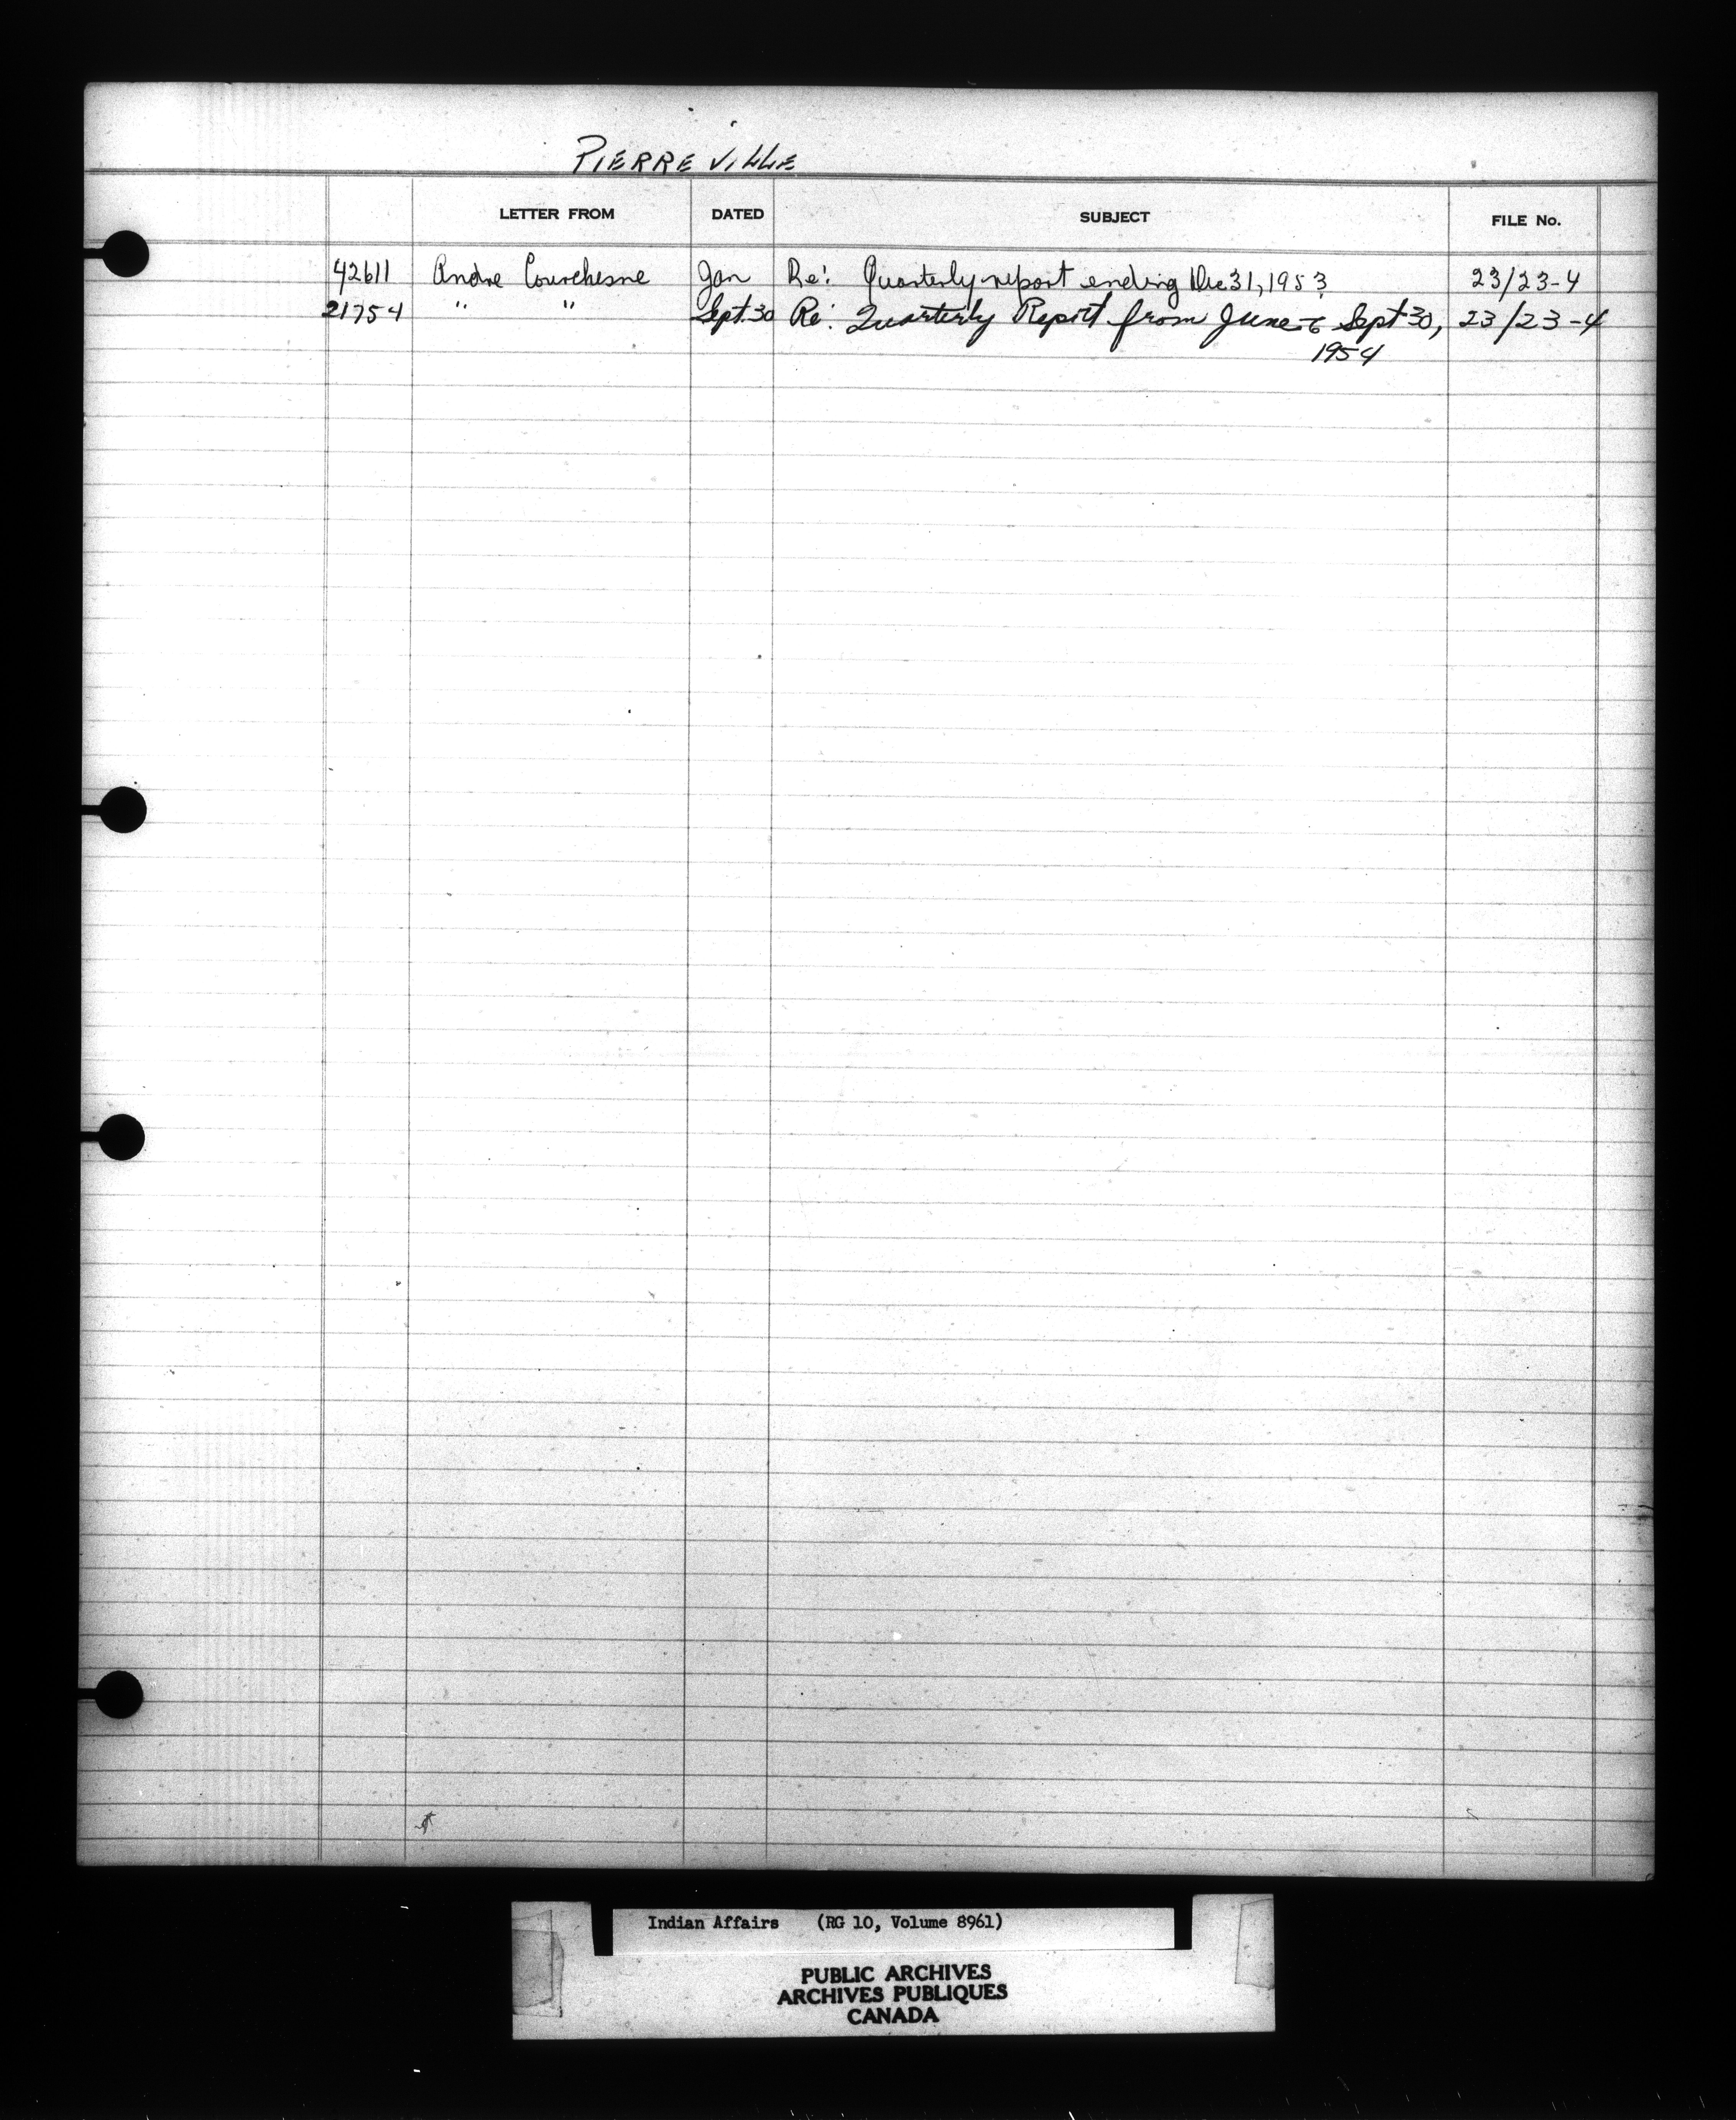 PIERREVILLE
LETTER FROM DATED SUBJECT FILE No.
42611 Andre Courchesne Jan Re: Quarterly report ending Dec 31, 1953 23/23-4
21754 " " Sept. 30 Re: Quarterly Report from June to Sept 30, 23/23-4
1954
Indian Affairs (RG 10, Volume 8961)
PUBLIC ARCHIVES
ARCHIVES PUBLIQUES
CANADA